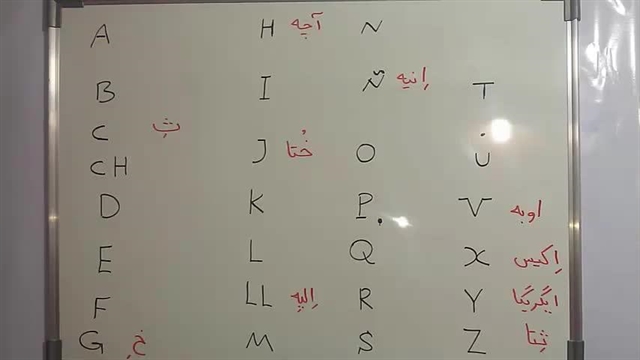 A
B
C ثِ
CH
D
E
F
G خِ
H آچه
I
J خُتا
K
L
LL اِلیه
M
N
Ñ اِنیه
O
P
Q
R
S
T
U
V اوبه
X اِکیس
Y ایگریگا
Z ثتا